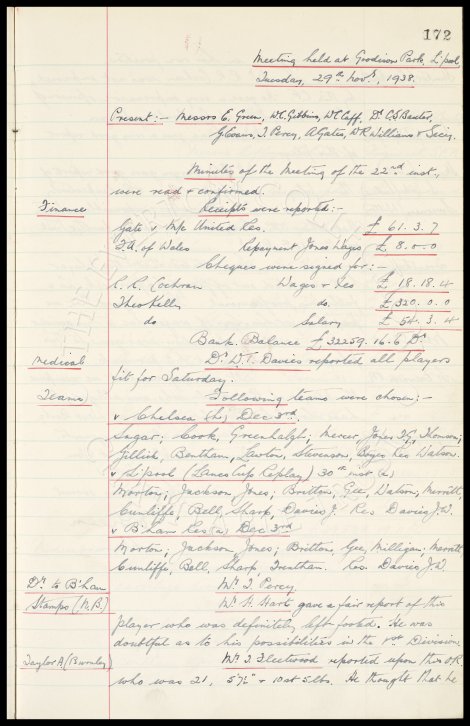 172
Meeting held at Goodison Park, L'pool
Tuesday, 29th Novr, 1938.
Present:- Messrs E. Green, W.C. Gibbins, W.C. Cuff, Dr C.S. Baxter,
G. Evans, T. Percy, A. Gates, W.R. Williams & Secy.
Minutes of the Meeting of the 22nd inst,
were read & confirmed.
Finance
Receipts were reported:-
Gate v M/c United Res. £ 61. 3. 7
F.A. of Wales Repayment Jones Wages £ 8. 0. 0
Cheques were signed for:-
R. R. Cochran Wages & £ 18. 18. 4
Theo Kelly do. £ 320. 0. 0
do Salary £ 54. 3. 4
Bank Balance £ 32259. 16. 6 Dr
Medical
Dr W.T. Davies reported all players
fit for Saturday.
Teams
Following teams were chosen:-
v Chelsea (h) Dec 3rd.
Sagar; Cook, Greenhalgh; Mercer, Jones T.G., Thomson;
Gillick, Bentham, Lawton, Stevenson, Boyes Res Watson.
v L'pool (Lancs Cup Replay) 30th inst (h)
Morton; Jackson, Jones; Britton, Gee, Watson; Merritt,
Cunliffe, Bell, Sharp, Davies J. Res Davies J.W.
v B'ham Res (a) Dec 3rd
Morton; Jackson, Jones; Britton, Gee, Milligan, Merritt,
Cunliffe, Bell, Sharp, Trentham. Res. Davies J.W.
Dr. to B'ham
Mr T. Percy.
Stamps (N.B.)
Mr H. Hart gave a fair report of this
player who was definitely left footed. He was
doubtful as to his possibilities in the 1st Division
Taylor A (Burnley)
Mr T. Fleetwood reported upon this O.R.
who was 21, 5'7½" & 10st 5lbs. He thought that he